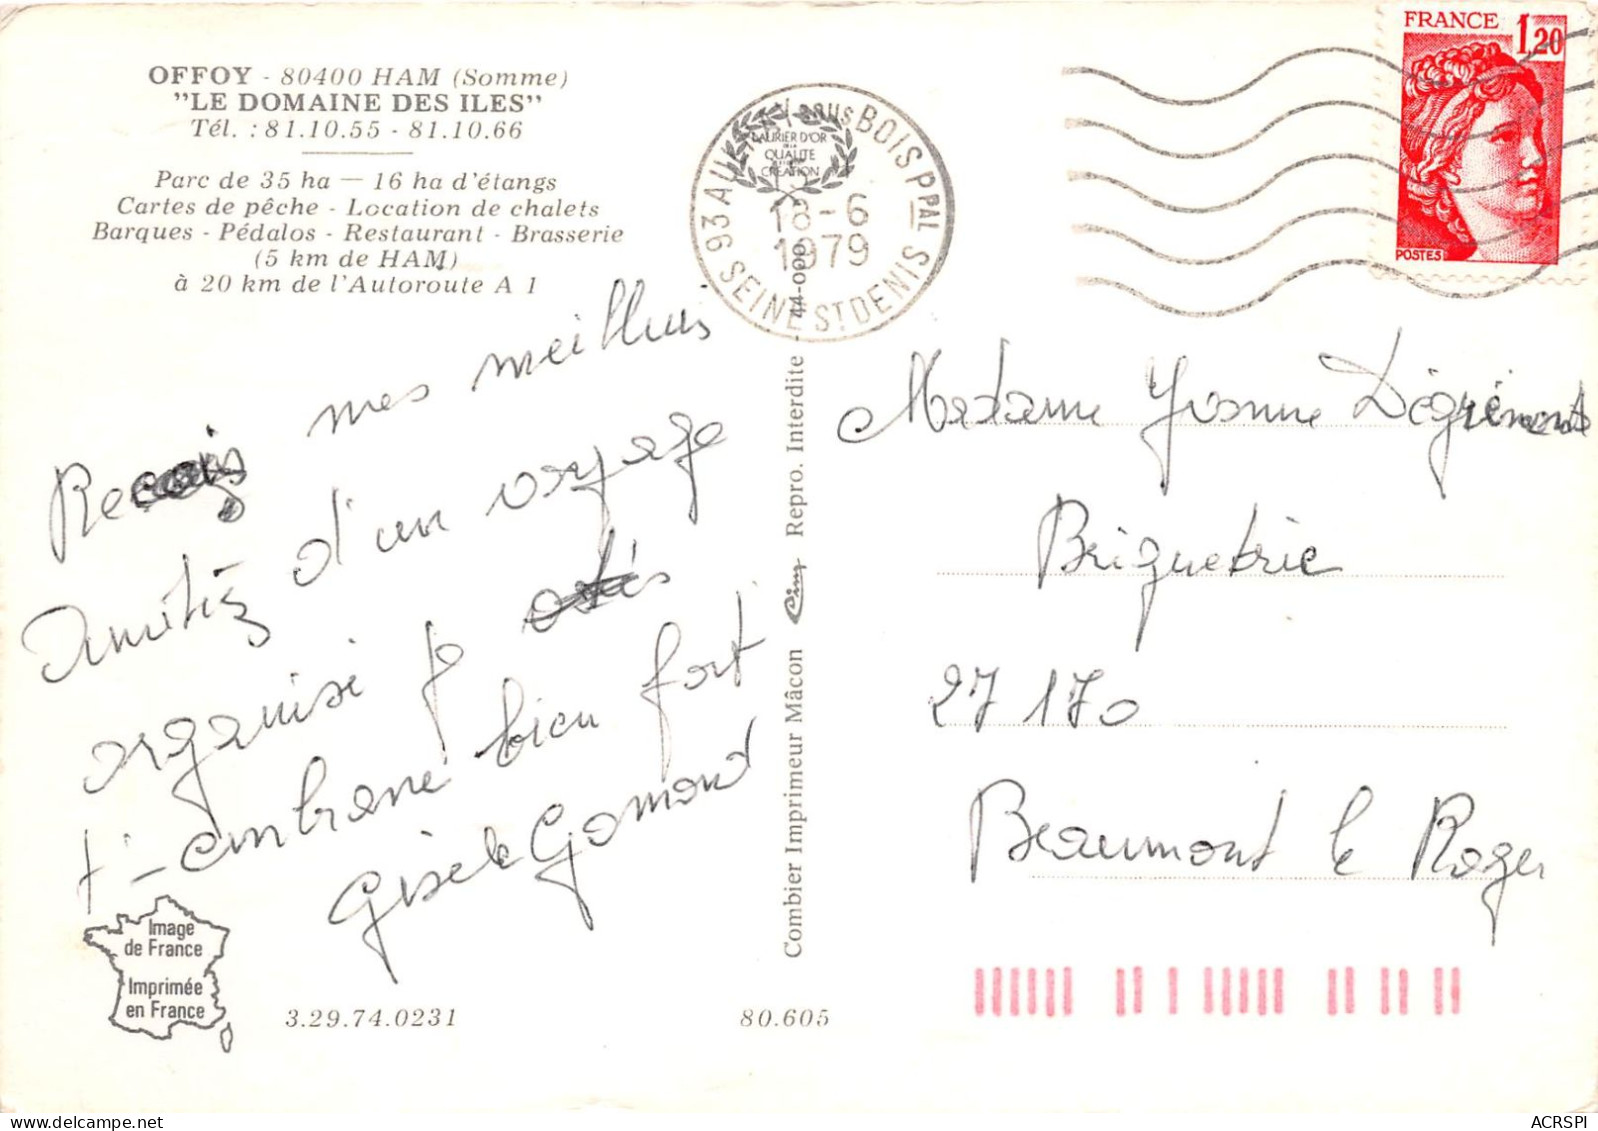 OFFOY - 80400 HAM (Somme)
"LE DOMAINE DES ILES"
Tél. : 81.10.55 - 81.10.66
Parc de 35 ha — 16 ha d'étangs
Cartes de pêche - Location de chalets
Barques - Pédalos - Restaurant - Brasserie
(5 km de HAM)
à 20 km de l'Autoroute A 1
Reçois mes meilleurs
amitiés d'un voyage
organisé je
t'-embrasse bien fort
Gisèle Gomond
Image
de France
Imprimée
en France
3.29.74.0231
80.605
Combier Imprimeur Mâcon Cim Repro. Interdite - 44-000
LAURIER D'OR
DE LA
QUALITE
CREATION
93 AULNAY sous BOIS PPAL
18-6
1979
SEINE ST DENIS
FRANCE 1,20
POSTES
Madame Yvonne Dégrémont
Briqueterie
27170
Beaumont le Roger
ACRSPI